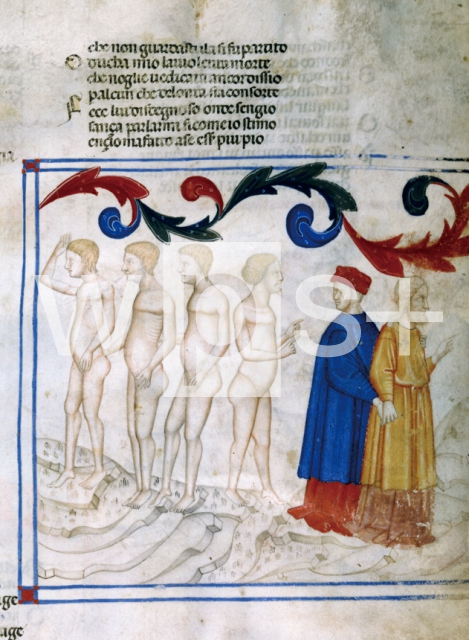 che non guardasti la si fu partito
O ducha mio la violenta morte
che nogli e vedicata ancor dissio
palcun che delonta sia consorte
Fece lui disdegnoso onde sengio
sança parlarmi si come io stimo
ençio ma fatto a se piu pio
wps+
age
age